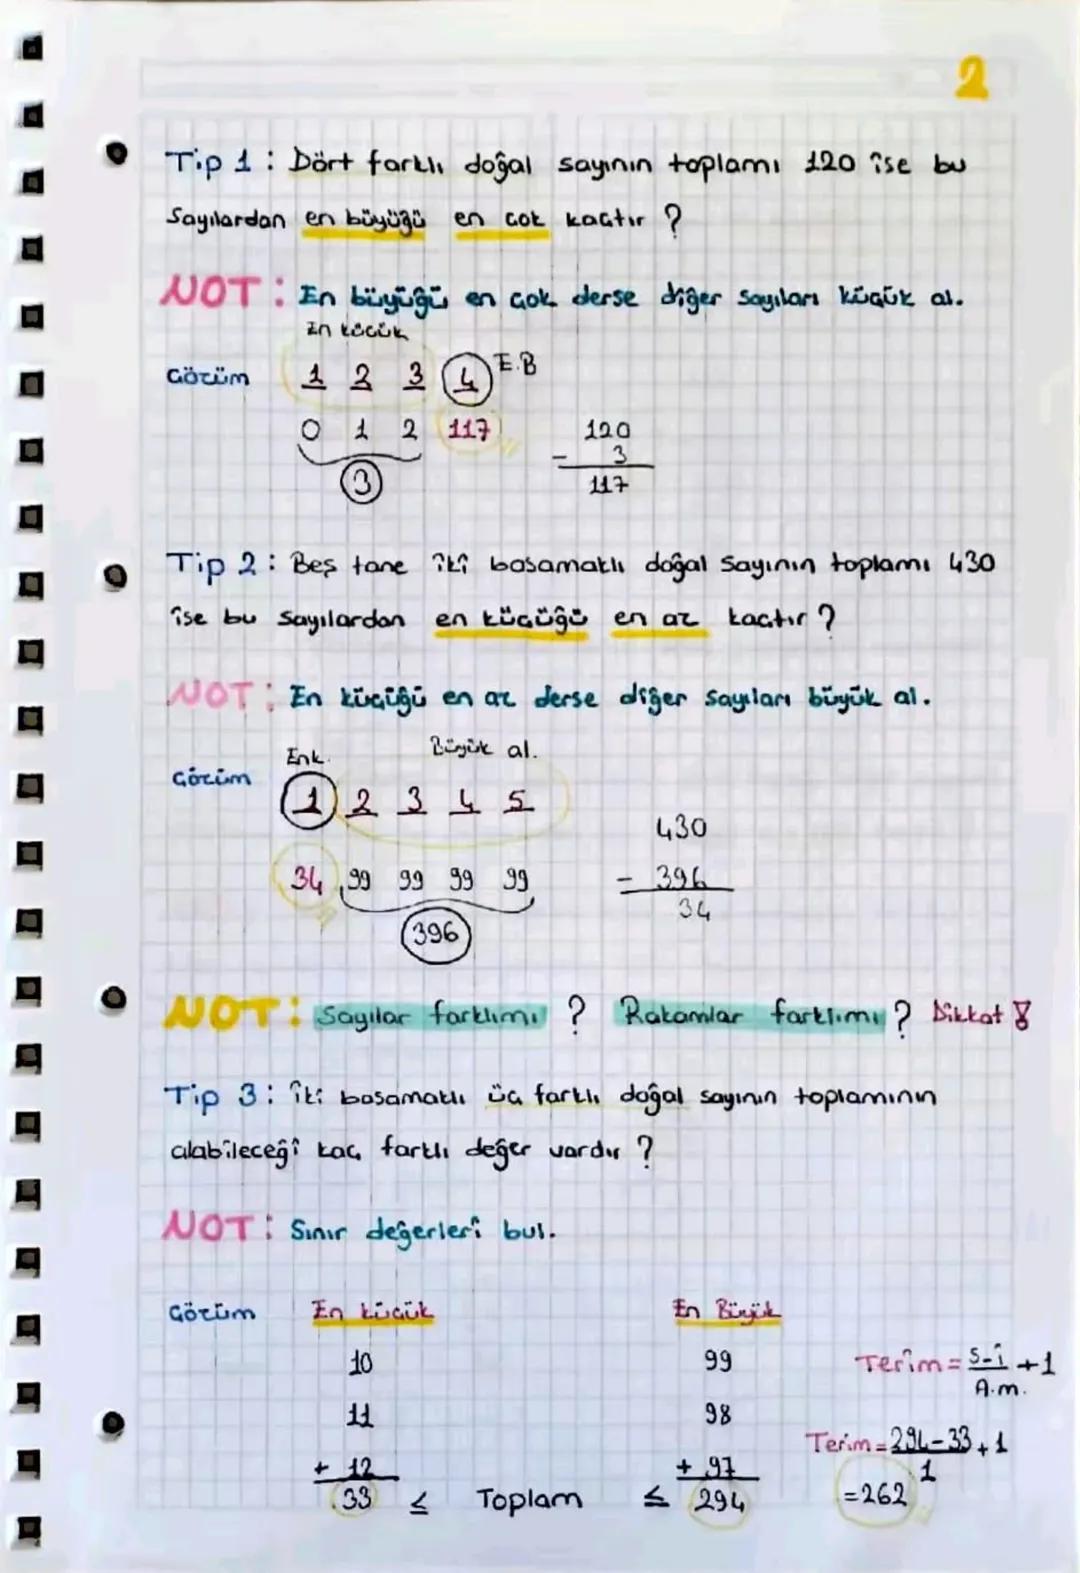 2
Tip 1 : Dört farklı doğal sayının toplamı 120 ise bu
Sayılardan en büyüğü en çok kaçtır ?
NOT : En büyüğü en çok derse diğer sayıları küçük al.
En küçük
Çözüm 1 2 3 4 E.B
0 1 2 117
3
120
- 3
117
Tip 2 : Beş tane iki basamaklı doğal sayının toplamı 430
ise bu sayılardan en küçüğü en az kaçtır ?
NOT : En küçüğü en az derse diğer sayıları büyük al.
Enk. Büyük al.
Çözüm 1 2 3 4 5
34 99 99 99 99
396
430
- 396
34
NOT : Sayılar farklımı ? Rakamlar farklımı ? Dikkat !
Tip 3 : İki basamaklı üç farklı doğal sayının toplamının
alabileceği kaç farklı değer vardır ?
NOT : Sınır değerleri bul.
Çözüm En küçük En Büyük
10 99 Terim = S-İ / A.m. + 1
11 98
+ 12 + 97 Terim = 294-33 / 1 + 1
33 ≤ Toplam ≤ 294 = 262